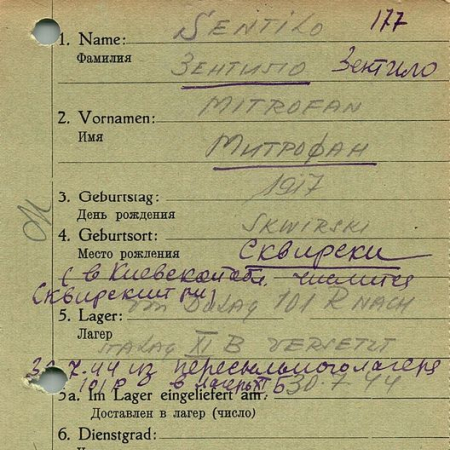 177
1. Name: SENTILO
Фамилия ЗЕНТИЛО Зентило
MITROFAN
2. Vornamen:
Имя МИТРОФАН
1917
3. Geburtstag:
День рождения
SKWIRSKI
4. Geburtsort:
Место рождения СКВИРСКИ
(в Киевской обл. числится
Сквирский рн)
DULAG 101 R NACH
5. Lager:
Лагер
STALAG XI B VERSETZT
30.7.44 из пересыльного лагеря
101 R в лагерь XI Б 30.7.44
5a. Im Lager eingeliefert am:
Доставлен в лагер (число)
6. Dienstgrad: